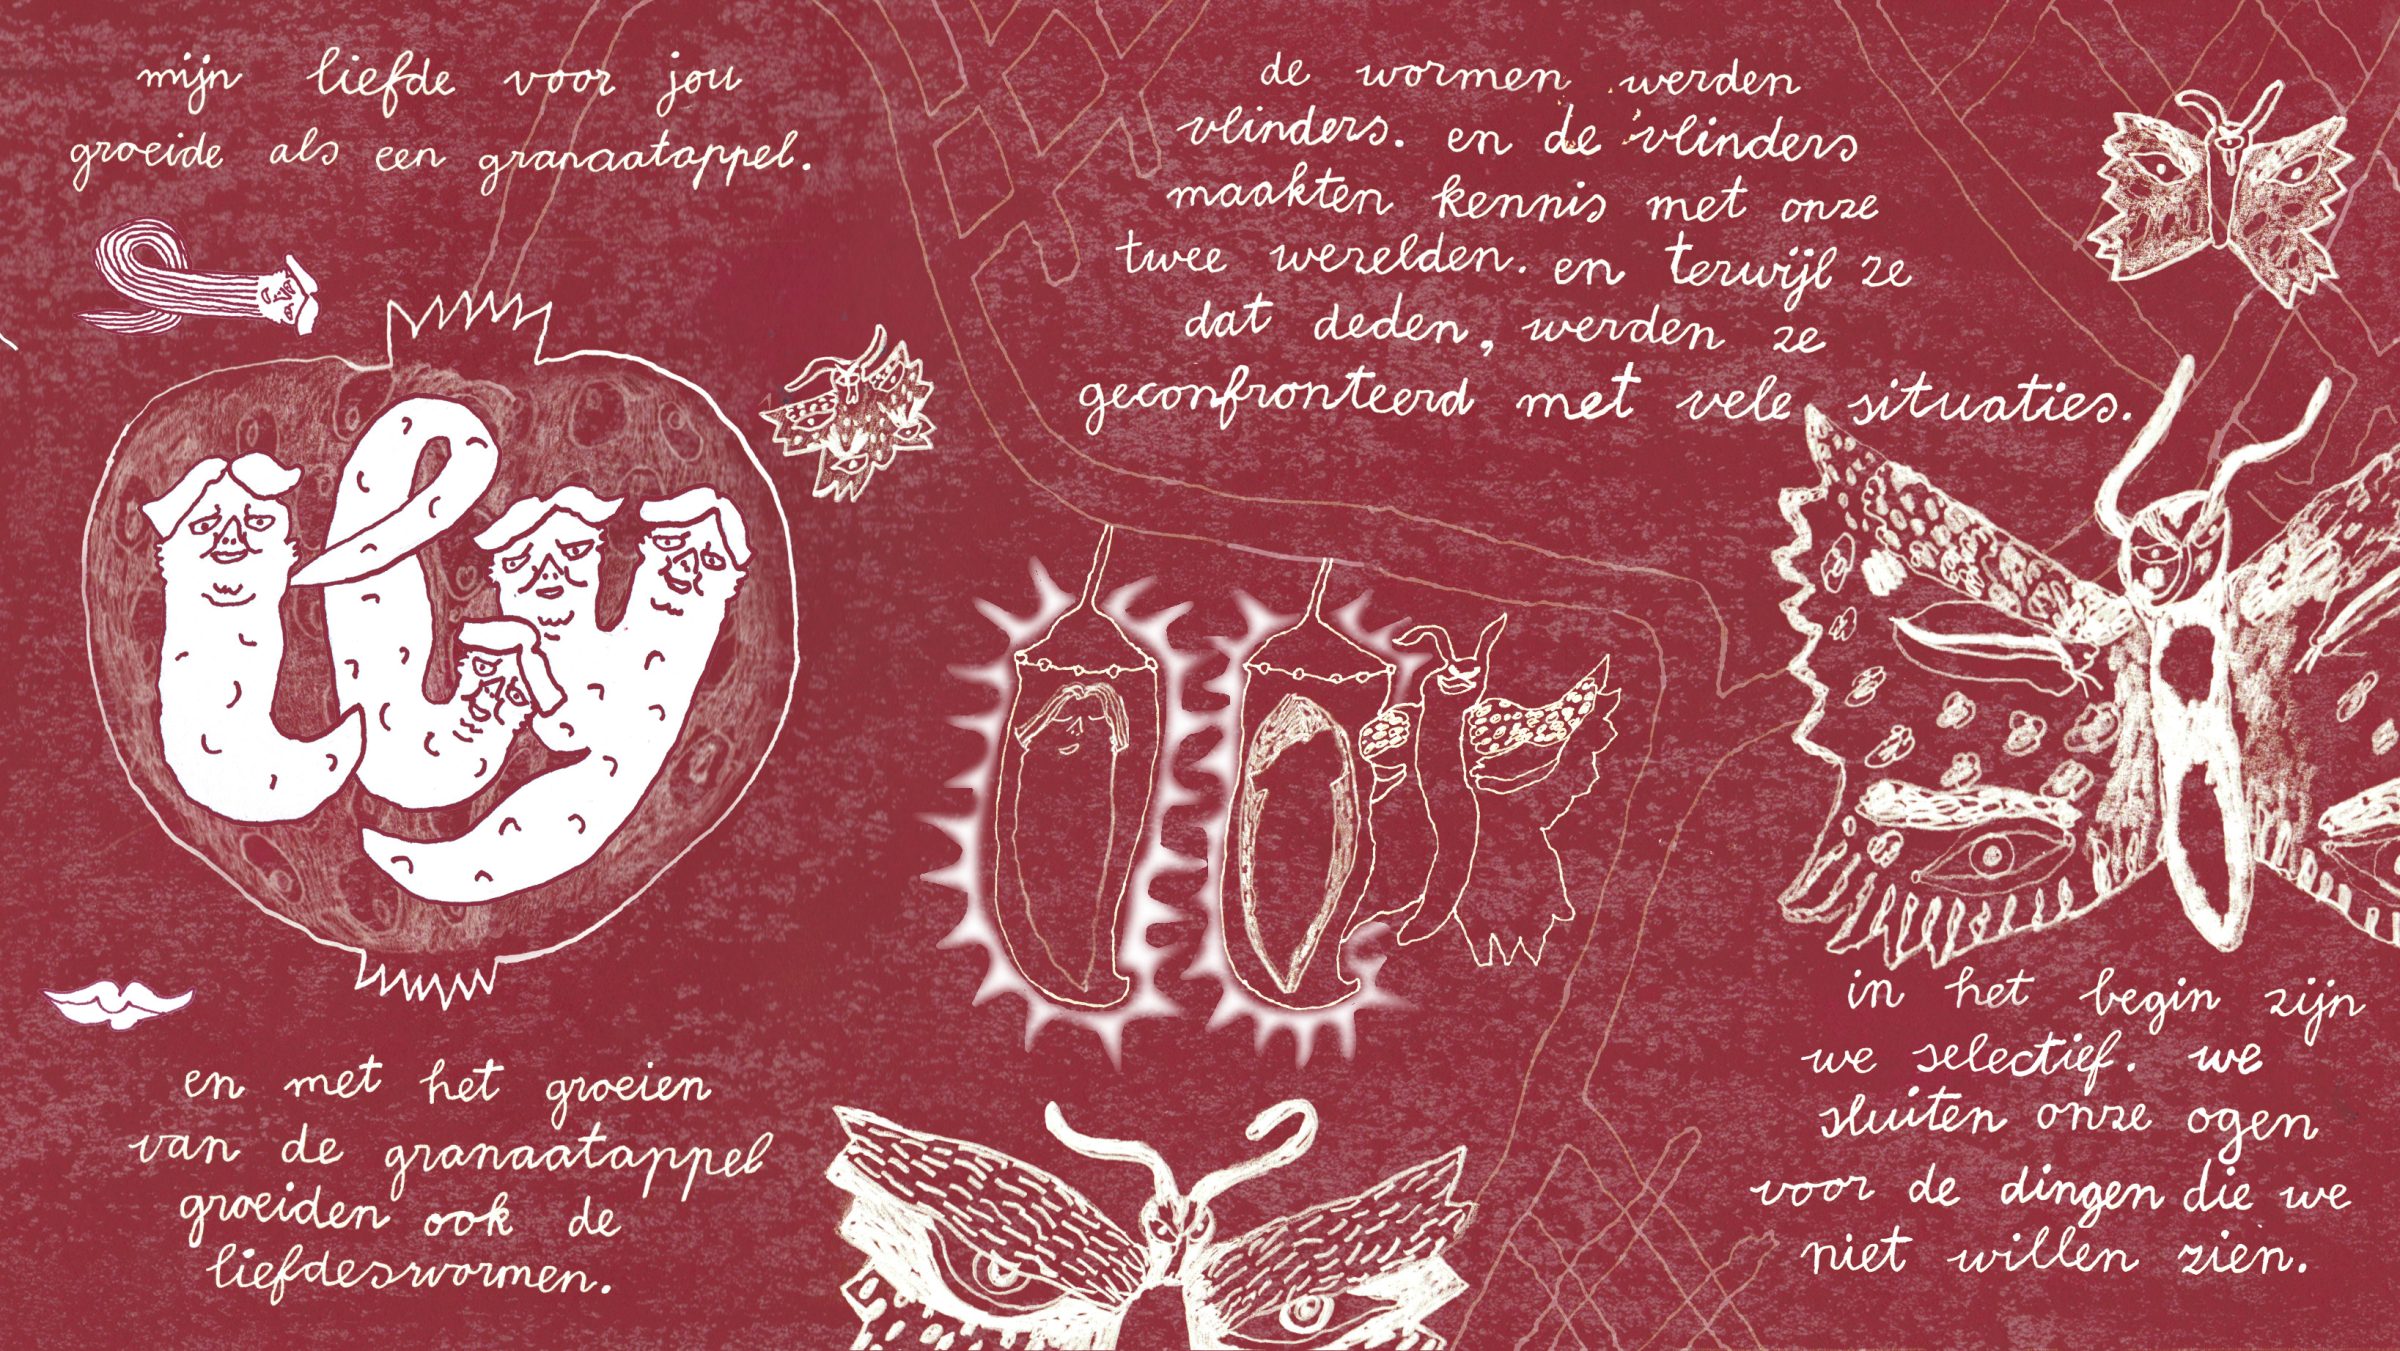 mijn liefde voor jou
groeide als een granaatappel.
en met het groeien
van de granaatappel
groeiden ook de
liefdeswormen.
de wormen werden
vlinders. en de vlinders
maakten kennis met onze
twee werelden. en terwijl ze
dat deden, werden ze
geconfronteerd met vele situaties.
in het begin zijn
we selectief. we
sluiten onze ogen
voor de dingen die we
niet willen zien.